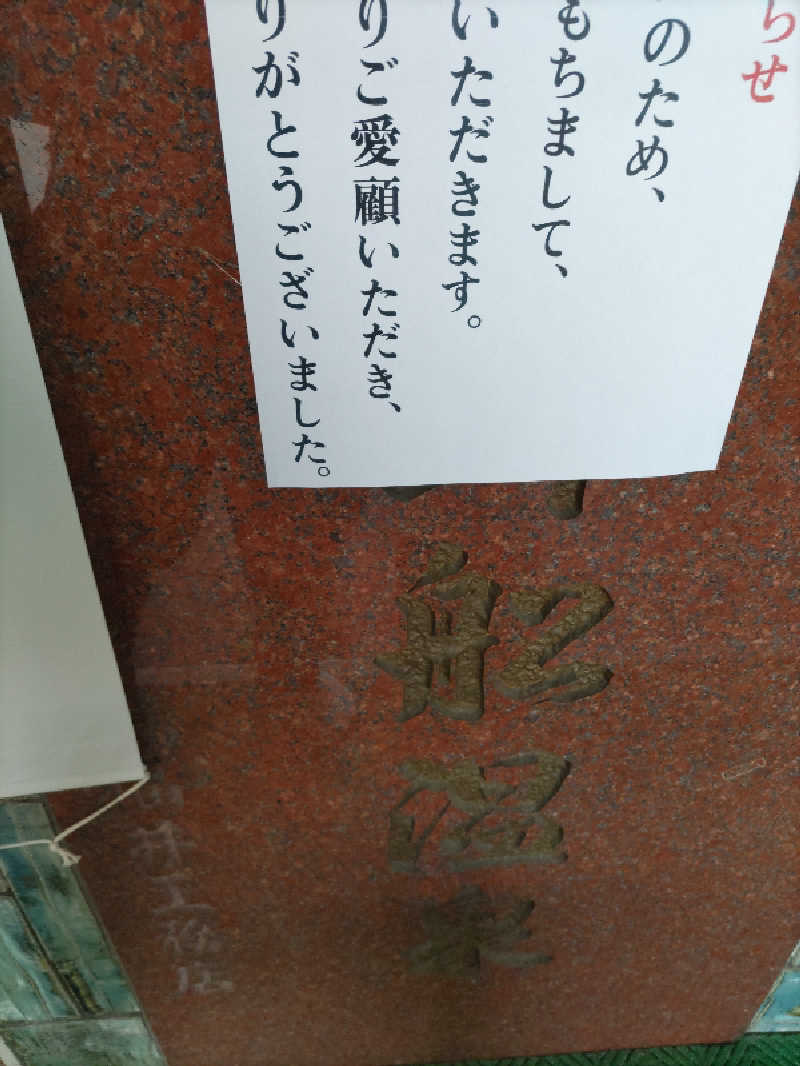 らせ
のため、
もちまして、
いただきます。
りご愛顧いただき、
りがとうございました。
船温泉
工務店